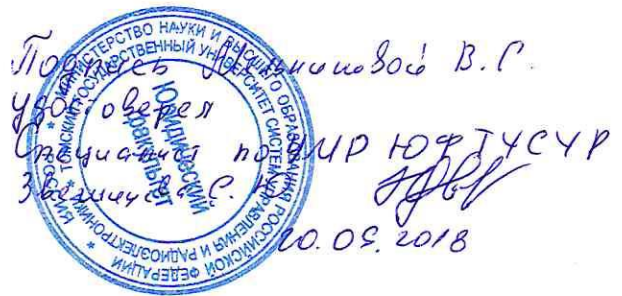 Подпись В.С.
удостоверяю
Специалист по УМР ЮФ ТУСУР
С.
20.05.2018
МИНИСТЕРСТВО НАУКИ И ВЫСШЕГО ОБРАЗОВАНИЯ РОССИЙСКОЙ ФЕДЕРАЦИИ
ТОМСКИЙ ГОСУДАРСТВЕННЫЙ УНИВЕРСИТЕТ СИСТЕМ УПРАВЛЕНИЯ И РАДИОЭЛЕКТРОНИКИ
Юридический
факультет